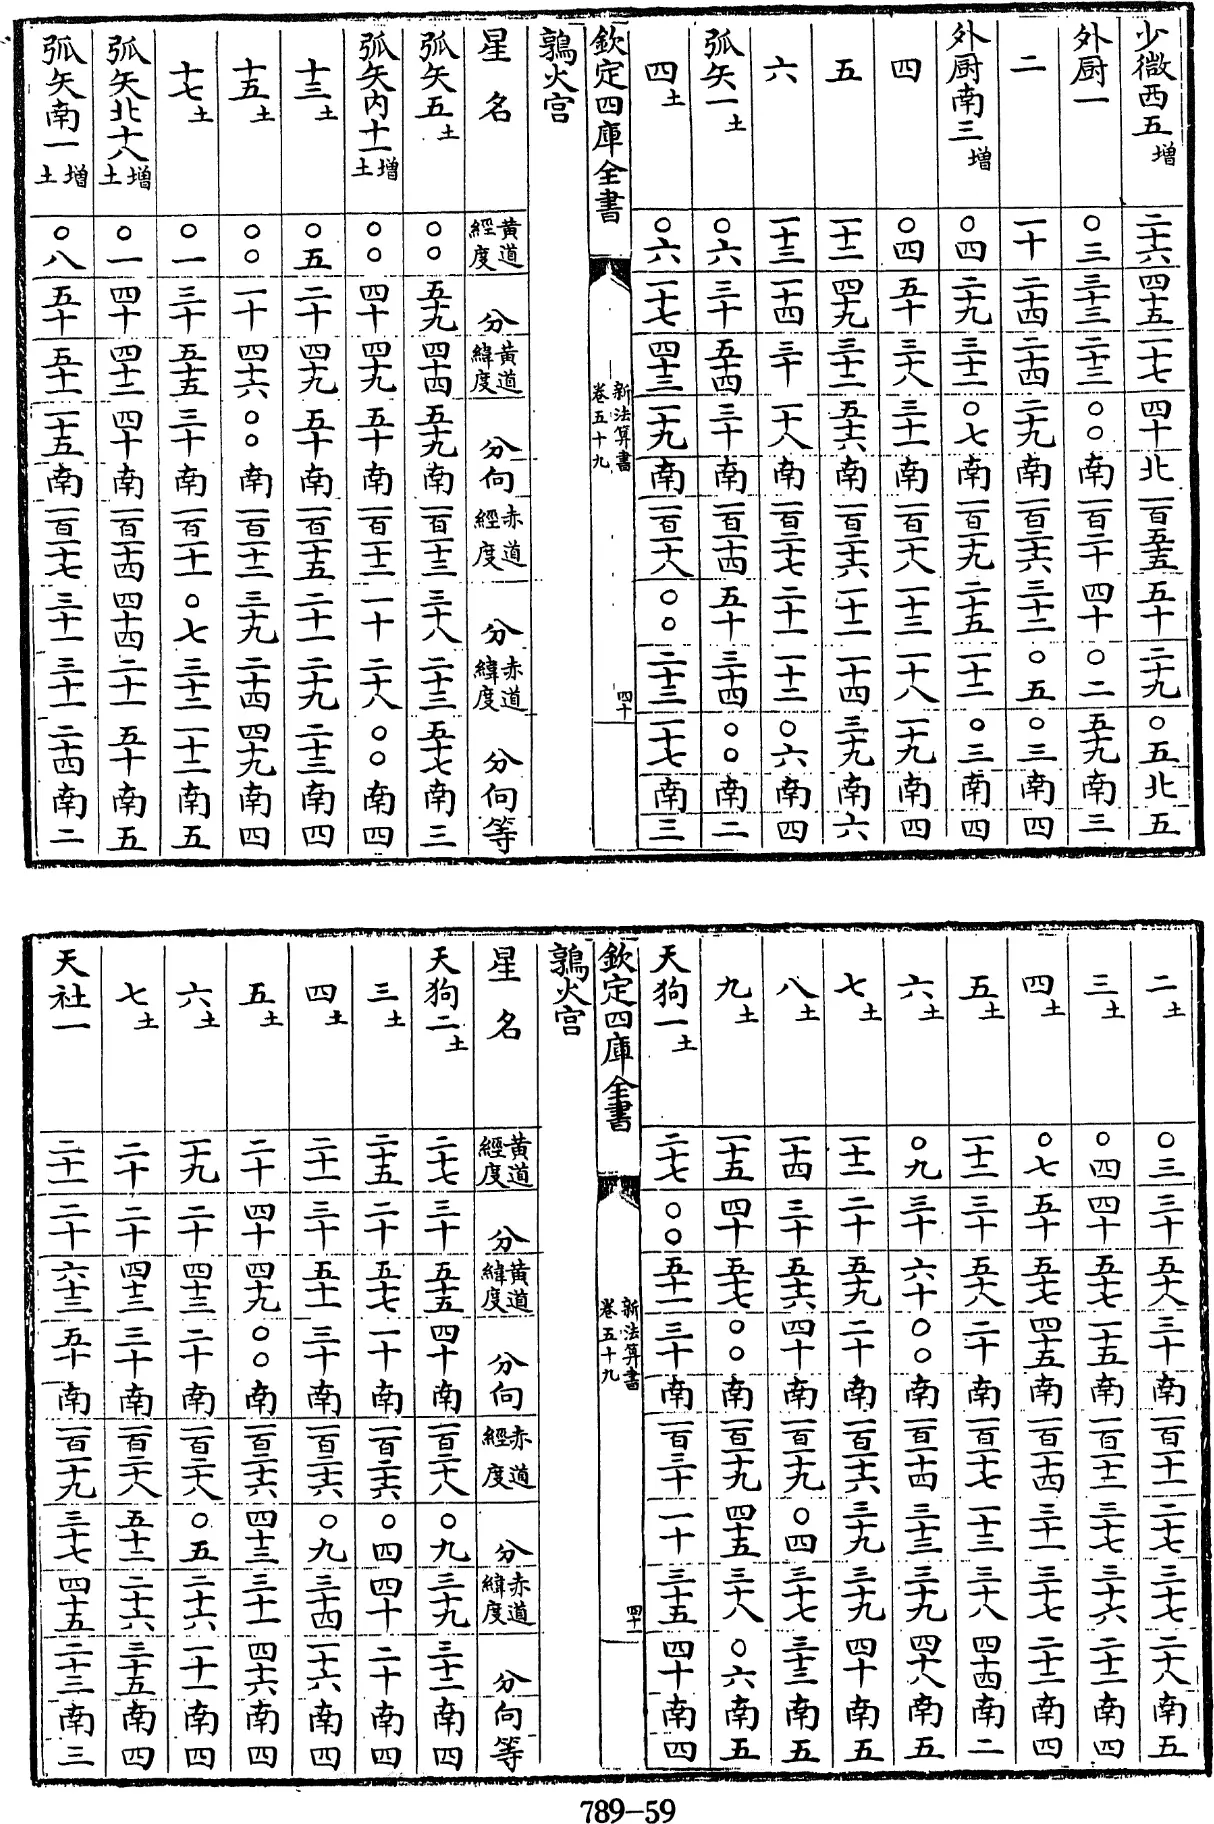 少微西五增 二十六 四十五 一十七 四十 北 一百五十五 五十 二十九 〇五 北 五
外厨一 〇三 三十三 二十三 〇〇 南 一百二十 四十 〇二 五十九 南 三
二 一十 二十四 二十四 二十九 南 一百二十六 三十二 〇五 〇三 南 四
外厨南三增 〇四 二十九 三十二 〇七 南 一百一十九 二十五 一十二 〇三 南 四
四 〇四 五十 三十八 三十一 南 一百一十八 一十三 一十八 一十九 南 四
五 一十二 四十九 三十二 五十六 南 一百二十六 一十二 一十四 三十九 南 六
六 一十三 一十四 三十 一十八 南 一百二十七 二十一 一十二 〇六 南 四
弧矢一土 〇六 三十 五十四 三十 南 一百一十四 五十 三十四 〇〇 南 二
四土 〇六 一十七 四十三 一十九 南 一百一十八 〇〇 二十三 一十七 南 三
欽定四庫全書 新法算書 卷五十九 四十
鶉火宮
星名 黄道經度 分 黄道緯度 分 向 赤道經度 分 赤道緯度 分 向 等
弧矢五土 〇〇 五十九 四十四 五十九 南 一百一十三 三十八 二十三 五十七 南 三
弧矢内十一增土 〇〇 四十 四十九 五十 南 一百一十二 一十 二十八 〇〇 南 四
十三土 〇五 二十 四十九 五十 南 一百一十五 二十一 二十九 二十三 南 四
十五土 〇〇 一十 四十六 〇〇 南 一百一十二 三十九 二十四 四十九 南 四
十七土 〇一 三十 五十五 三十 南 一百一十一 〇七 三十三 一十二 南 五
弧矢北十八增土 〇一 四十 四十二 四十 南 一百一十四 四十四 二十一 五十 南 五
弧矢南一增土 〇八 五十 五十一 一十五 南 一百一十七 三十一 三十一 二十四 南 二
二土 〇三 三十 五十八 三十 南 一百一十一 二十七 三十七 二十八 南 五
三土 〇四 四十 五十七 一十五 南 一百一十二 三十七 三十六 二十二 南 四
四土 〇七 五十 五十七 四十五 南 一百一十四 三十一 三十七 二十二 南 四
五土 一十二 三十 五十八 二十 南 一百一十七 一十三 三十八 四十四 南 二
六土 〇九 三十 六十 〇〇 南 一百一十四 三十三 三十九 四十八 南 五
七土 一十二 二十 五十九 二十 南 一百一十六 三十九 三十九 四十 南 五
八土 一十四 三十 五十六 四十 南 一百一十九 〇四 三十七 三十三 南 五
九土 一十五 四十 五十七 〇〇 南 一百一十九 四十五 三十八 〇六 南 五
天狗一土 二十七 〇〇 五十一 三十 南 一百三十 一十 三十五 四十 南 四
欽定四庫全書 新法算書 卷五十九 四十一
鶉火宮
星名 黄道經度 分 黄道緯度 分 向 赤道經度 分 赤道緯度 分 向 等
天狗二土 二十七 三十 五十五 四十 南 一百二十八 〇九 三十九 三十二 南 四
三土 二十五 二十 五十七 一十 南 一百二十六 〇四 四十 二十 南 四
四土 二十一 三十 五十一 三十 南 一百二十六 〇九 三十四 一十六 南 四
五土 二十 四十 四十九 〇〇 南 一百二十六 四十三 三十一 四十六 南 四
六土 一十九 二十 四十三 二十 南 一百二十八 〇五 二十六 一十一 南 四
七土 二十 二十 四十三 三十 南 一百二十八 五十二 二十六 三十五 南 四
天社一 二十一 二十 六十三 五十 南 一百一十九 三十七 四十五 二十三 南 三
789–59